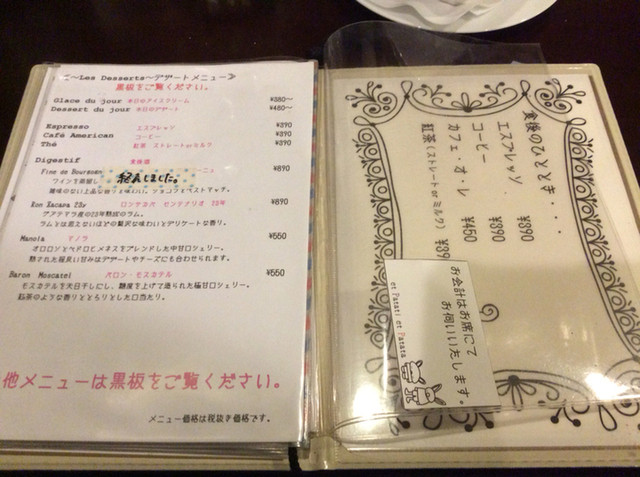 ≪～Les Desserts～デザートメニュー≫
黒板をご覧ください。
Glace du jour 本日のアイスクリーム ¥380～
Dessert du jour 本日のデザート ¥480～
Espresso エスプレッソ ¥390
Café American コーヒー ¥390
Thé 紅茶 ストレートorミルク ¥390
Digestif 食後酒
Fine de Bourgogne ¥890
終了しました。
Ron Zacapa 23y ロンサカパ センテナリオ 23年 ¥890
グアテマラ産の23年熟成のラム。
ラムとは思えないほどの贅沢な味わいとデリケートな香り。
Manola マノラ ¥550
オロロソとペドロヒメネスをブレンドした中甘口シェリー。
熟された程良い甘みはデザートやチーズにも合わせられます。
Baron Moscatel バロン・モスカテル ¥550
モスカテルを天日干しにし、糖度を上げて造られた極甘口シェリー。
紅茶のような香りととろりとした口当たり。
他メニューは黒板をご覧ください。
メニュー価格は税抜き価格です。
食後のひととき・・・
エスプレッソ ¥390
コーヒー ¥390
カフェ・オ・レ ¥450
紅茶(ストレート or ミルク) ¥39
お会計はお席にて
お伺いいたします。
et Patati et Patata